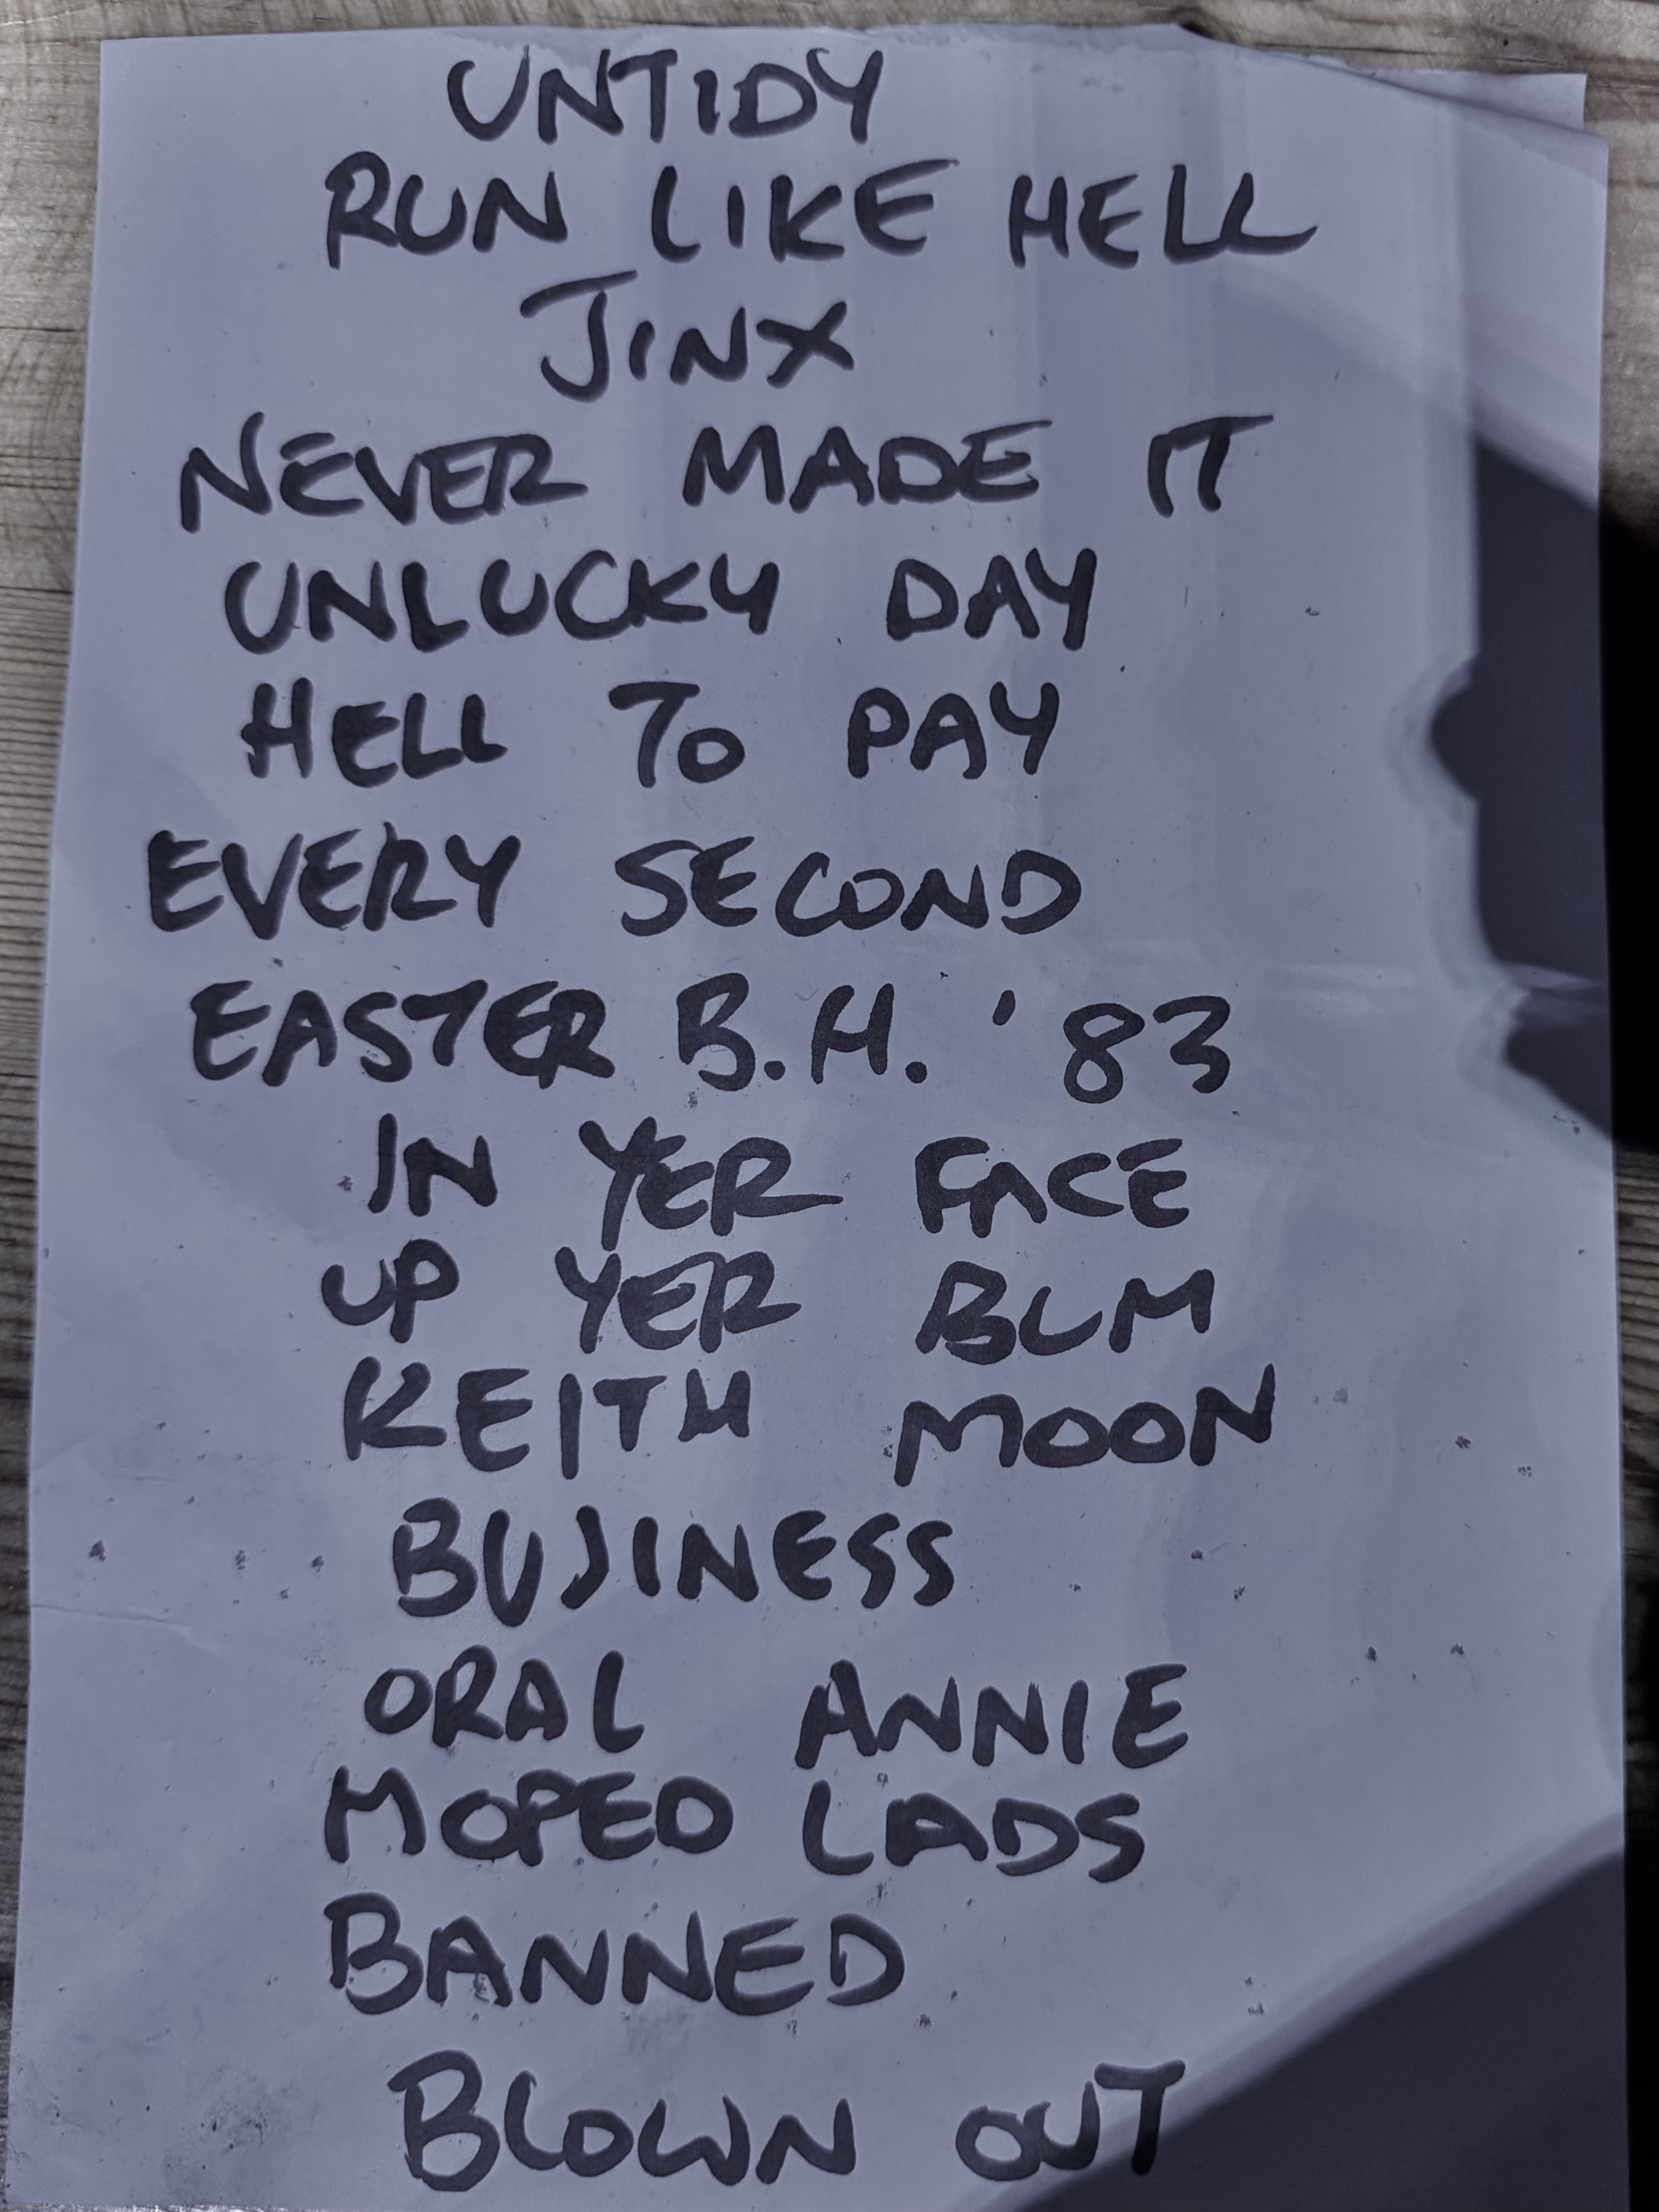 UNTIDY
RUN LIKE HELL
JINX
NEVER MADE IT
UNLUCKY DAY
HELL TO PAY
EVERY SECOND
EASTER B.H. '83
IN YER FACE
UP YER BUM
KEITH MOON
BUSINESS
ORAL ANNIE
MOPED LADS
BANNED
BLOWN OUT